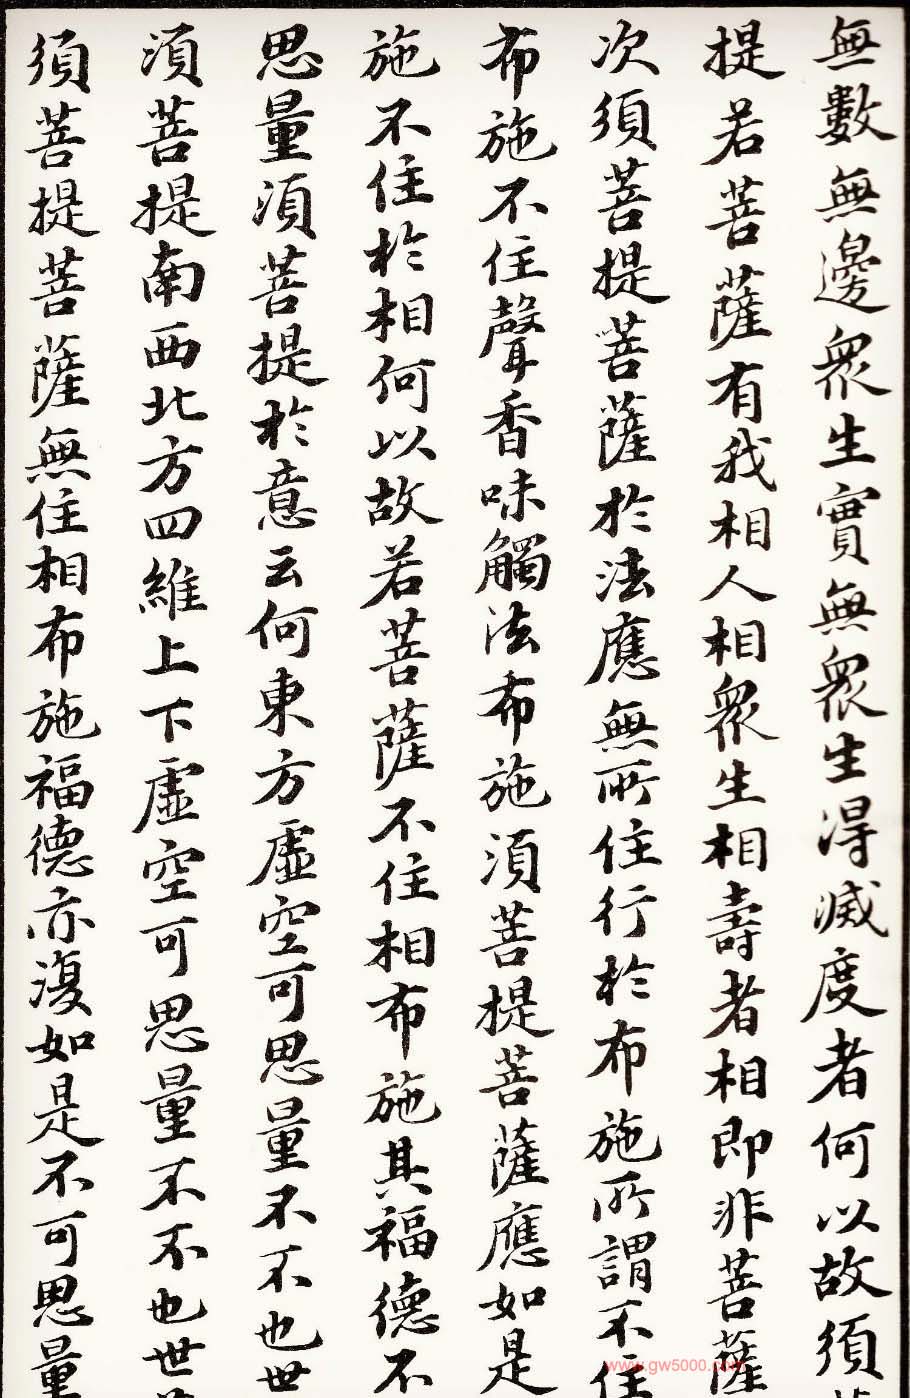 無數無邊眾生實無眾生得滅度者何以故須菩
提若菩薩有我相人相眾生相壽者相即非菩薩
次須菩提菩薩於法應無所住行於布施所謂不住
布施不住聲香味觸法布施須菩提菩薩應如是
施不住於相何以故若菩薩不住相布施其福德不
思量須菩提於意云何東方虛空可思量不不也世
須菩提南西北方四維上下虛空可思量不不也世
須菩提菩薩無住相布施福德亦復如是不可思量
www.gw5000.com